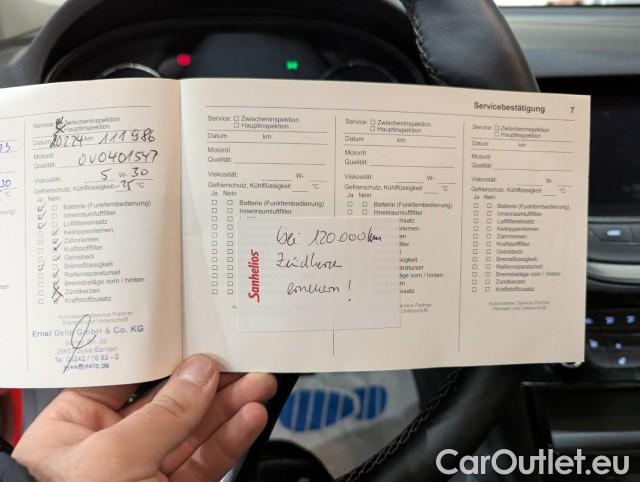 Servicebestätigung 7
Service: Zwischeninspektion
Hauptinspektion
Datum 20 2 24 km 111 986
Motoröl
Qualität: OVO401547
Viskosität: 5 W- 30
Gefrierschutz, Kühlflüssigkeit -25 °C
Ja Nein
Batterie (Funkfernbedienung)
Innenraumluftfilter
Luftfiltereinsatz
Keilrippenriemen
Zahnriemen
Kraftstofffilter
Getriebeöl
Bremsflüssigkeit
Reifenreparaturset
Bremsbeläge vorn / hinten
Zündkerzen
Kraftstoffzusatz
Autorisierter Service Partner
Ernst Dello GmbH & Co. KG
Tel. 04242 / 16 82 - 0
Service: Zwischeninspektion
Hauptinspektion
Datum km
Motoröl
Qualität:
Viskosität: W-
Gefrierschutz, Kühlflüssigkeit °C
Ja Nein
Batterie (Funkfernbedienung)
Innenraumluftfilter
Sanhelios
bei 120.000 km
Zündkerze
erneuern!
Service: Zwischeninspektion
Hauptinspektion
Datum km
Motoröl
Qualität:
Viskosität: W-
Gefrierschutz, Kühlflüssigkeit °C
Ja Nein
Batterie (Funkfernbedienung)
Innenraumluftfilter
Service: Zwischeninspektion
Hauptinspektion
Datum km
Motoröl
Qualität:
Viskosität: W-
Gefrierschutz, Kühlflüssigkeit °C
Ja Nein
Batterie (Funkfernbedienung)
Innenraumluftfilter
Luftfiltereinsatz
Keilrippenriemen
Zahnriemen
Kraftstofffilter
Getriebeöl
Bremsflüssigkeit
Reifenreparaturset
Bremsbeläge vorn / hinten
Zündkerzen
Kraftstoffzusatz
Autorisierter Service Partner
Stempel und Unterschrift
CarOutlet.eu